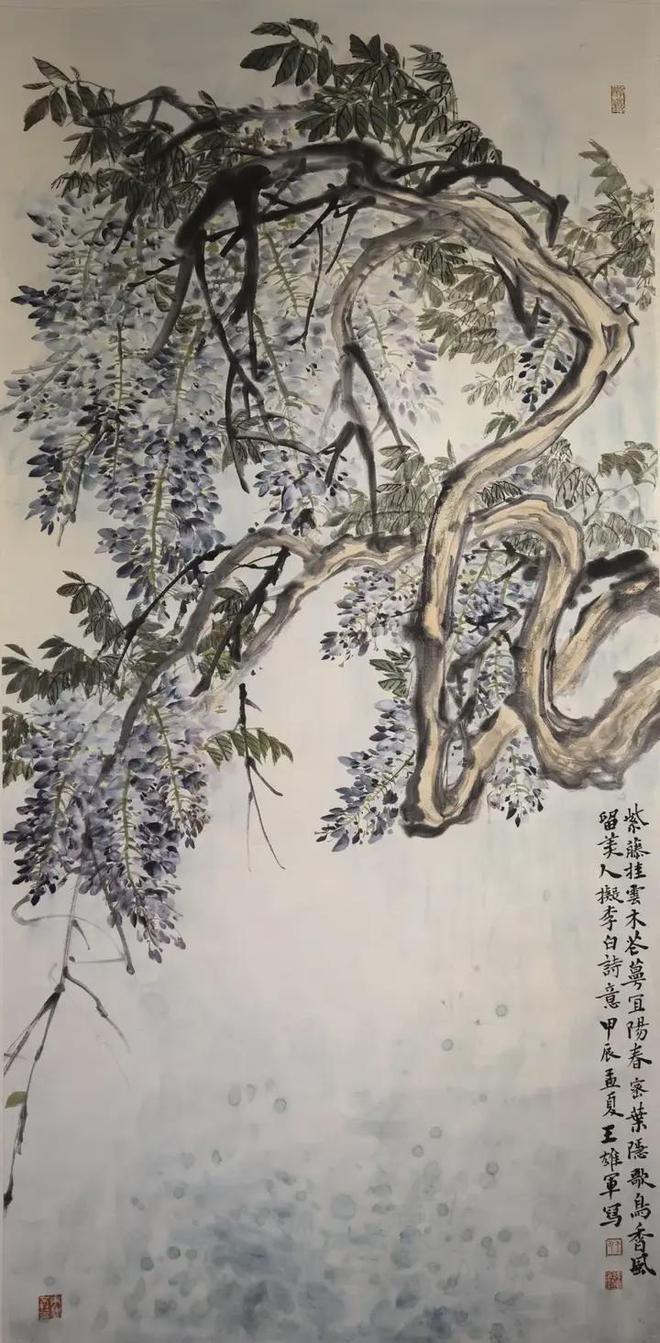 紫藤挂雲木花蔓宜陽春密葉隱歌鳥香風
留美人擬李白詩意甲辰孟夏王雄軍寫